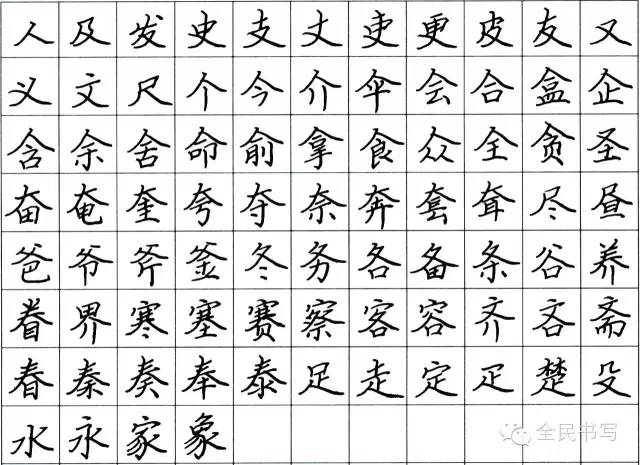 人及发史支丈吏更皮友又
义文尺个今介伞会合盒企
含余舍命俞拿食众全贪圣
奋奄奎夸夺奈奔套耷尽昼
爸爷斧釜冬务各备条谷养
眷界寒塞赛察客容齐吝斋
春秦奏奉泰足走定疋楚殳
水永家象
全民书写